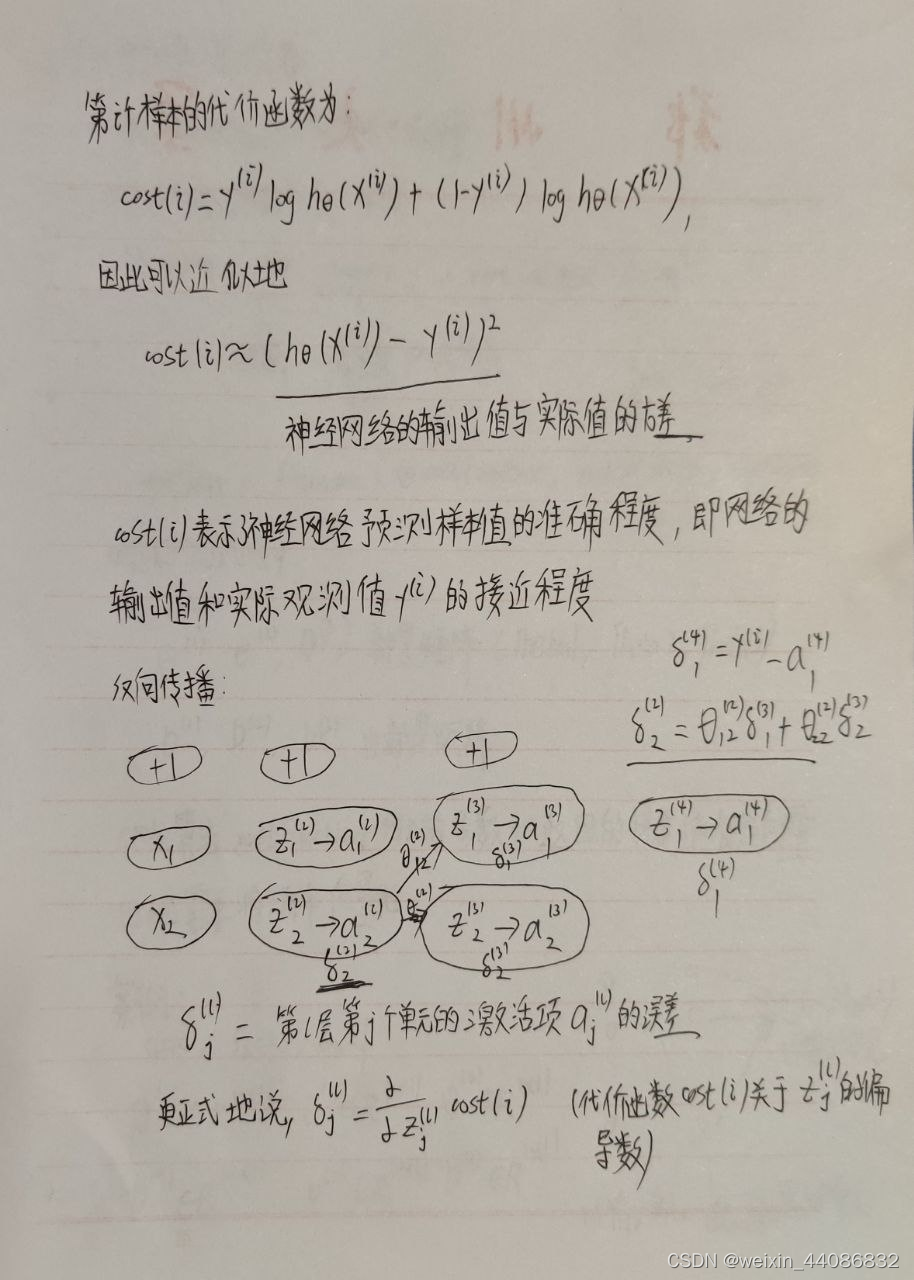 第i个样本的代价函数为:
cost(i)=y⁽ⁱ⁾ log hθ(x⁽ⁱ⁾) + (1-y⁽ⁱ⁾) log hθ(x⁽ⁱ⁾),
因此可以近似地
cost(i)≈(hθ(x⁽ⁱ⁾) - y⁽ⁱ⁾)²
神经网络的输出值与实际值的方差
cost(i)表示了神经网络预测样本值的准确程度, 即网络的
输出值和实际观测值y⁽ⁱ⁾的接近程度
δ₁⁽⁴⁾ = y⁽ⁱ⁾ - a₁⁽⁴⁾
反向传播:
δ₂⁽²⁾ = θ₁₂⁽²⁾δ₁⁽³⁾ + θ₂₂⁽²⁾δ₂⁽³⁾
+1 +1 +1
x₁ z₁⁽²⁾→a₁⁽²⁾ θ₁₂⁽²⁾ z₁⁽³⁾→a₁⁽³⁾ δ₁⁽³⁾ z₁⁽⁴⁾→a₁⁽⁴⁾
δ₁⁽⁴⁾
x₂ z₂⁽²⁾→a₂⁽²⁾ z₂⁽³⁾→a₂⁽³⁾
δ₂⁽²⁾ δ₂⁽³⁾
δⱼ⁽ˡ⁾ = 第l层第j个单元的激活项aⱼ⁽ˡ⁾的误差
更正式地说, δⱼ⁽ˡ⁾ = ∂/∂zⱼ⁽ˡ⁾ cost(i) (代价函数cost(i)关于zⱼ⁽ˡ⁾的偏
导数)
CSDN @weixin_44086832